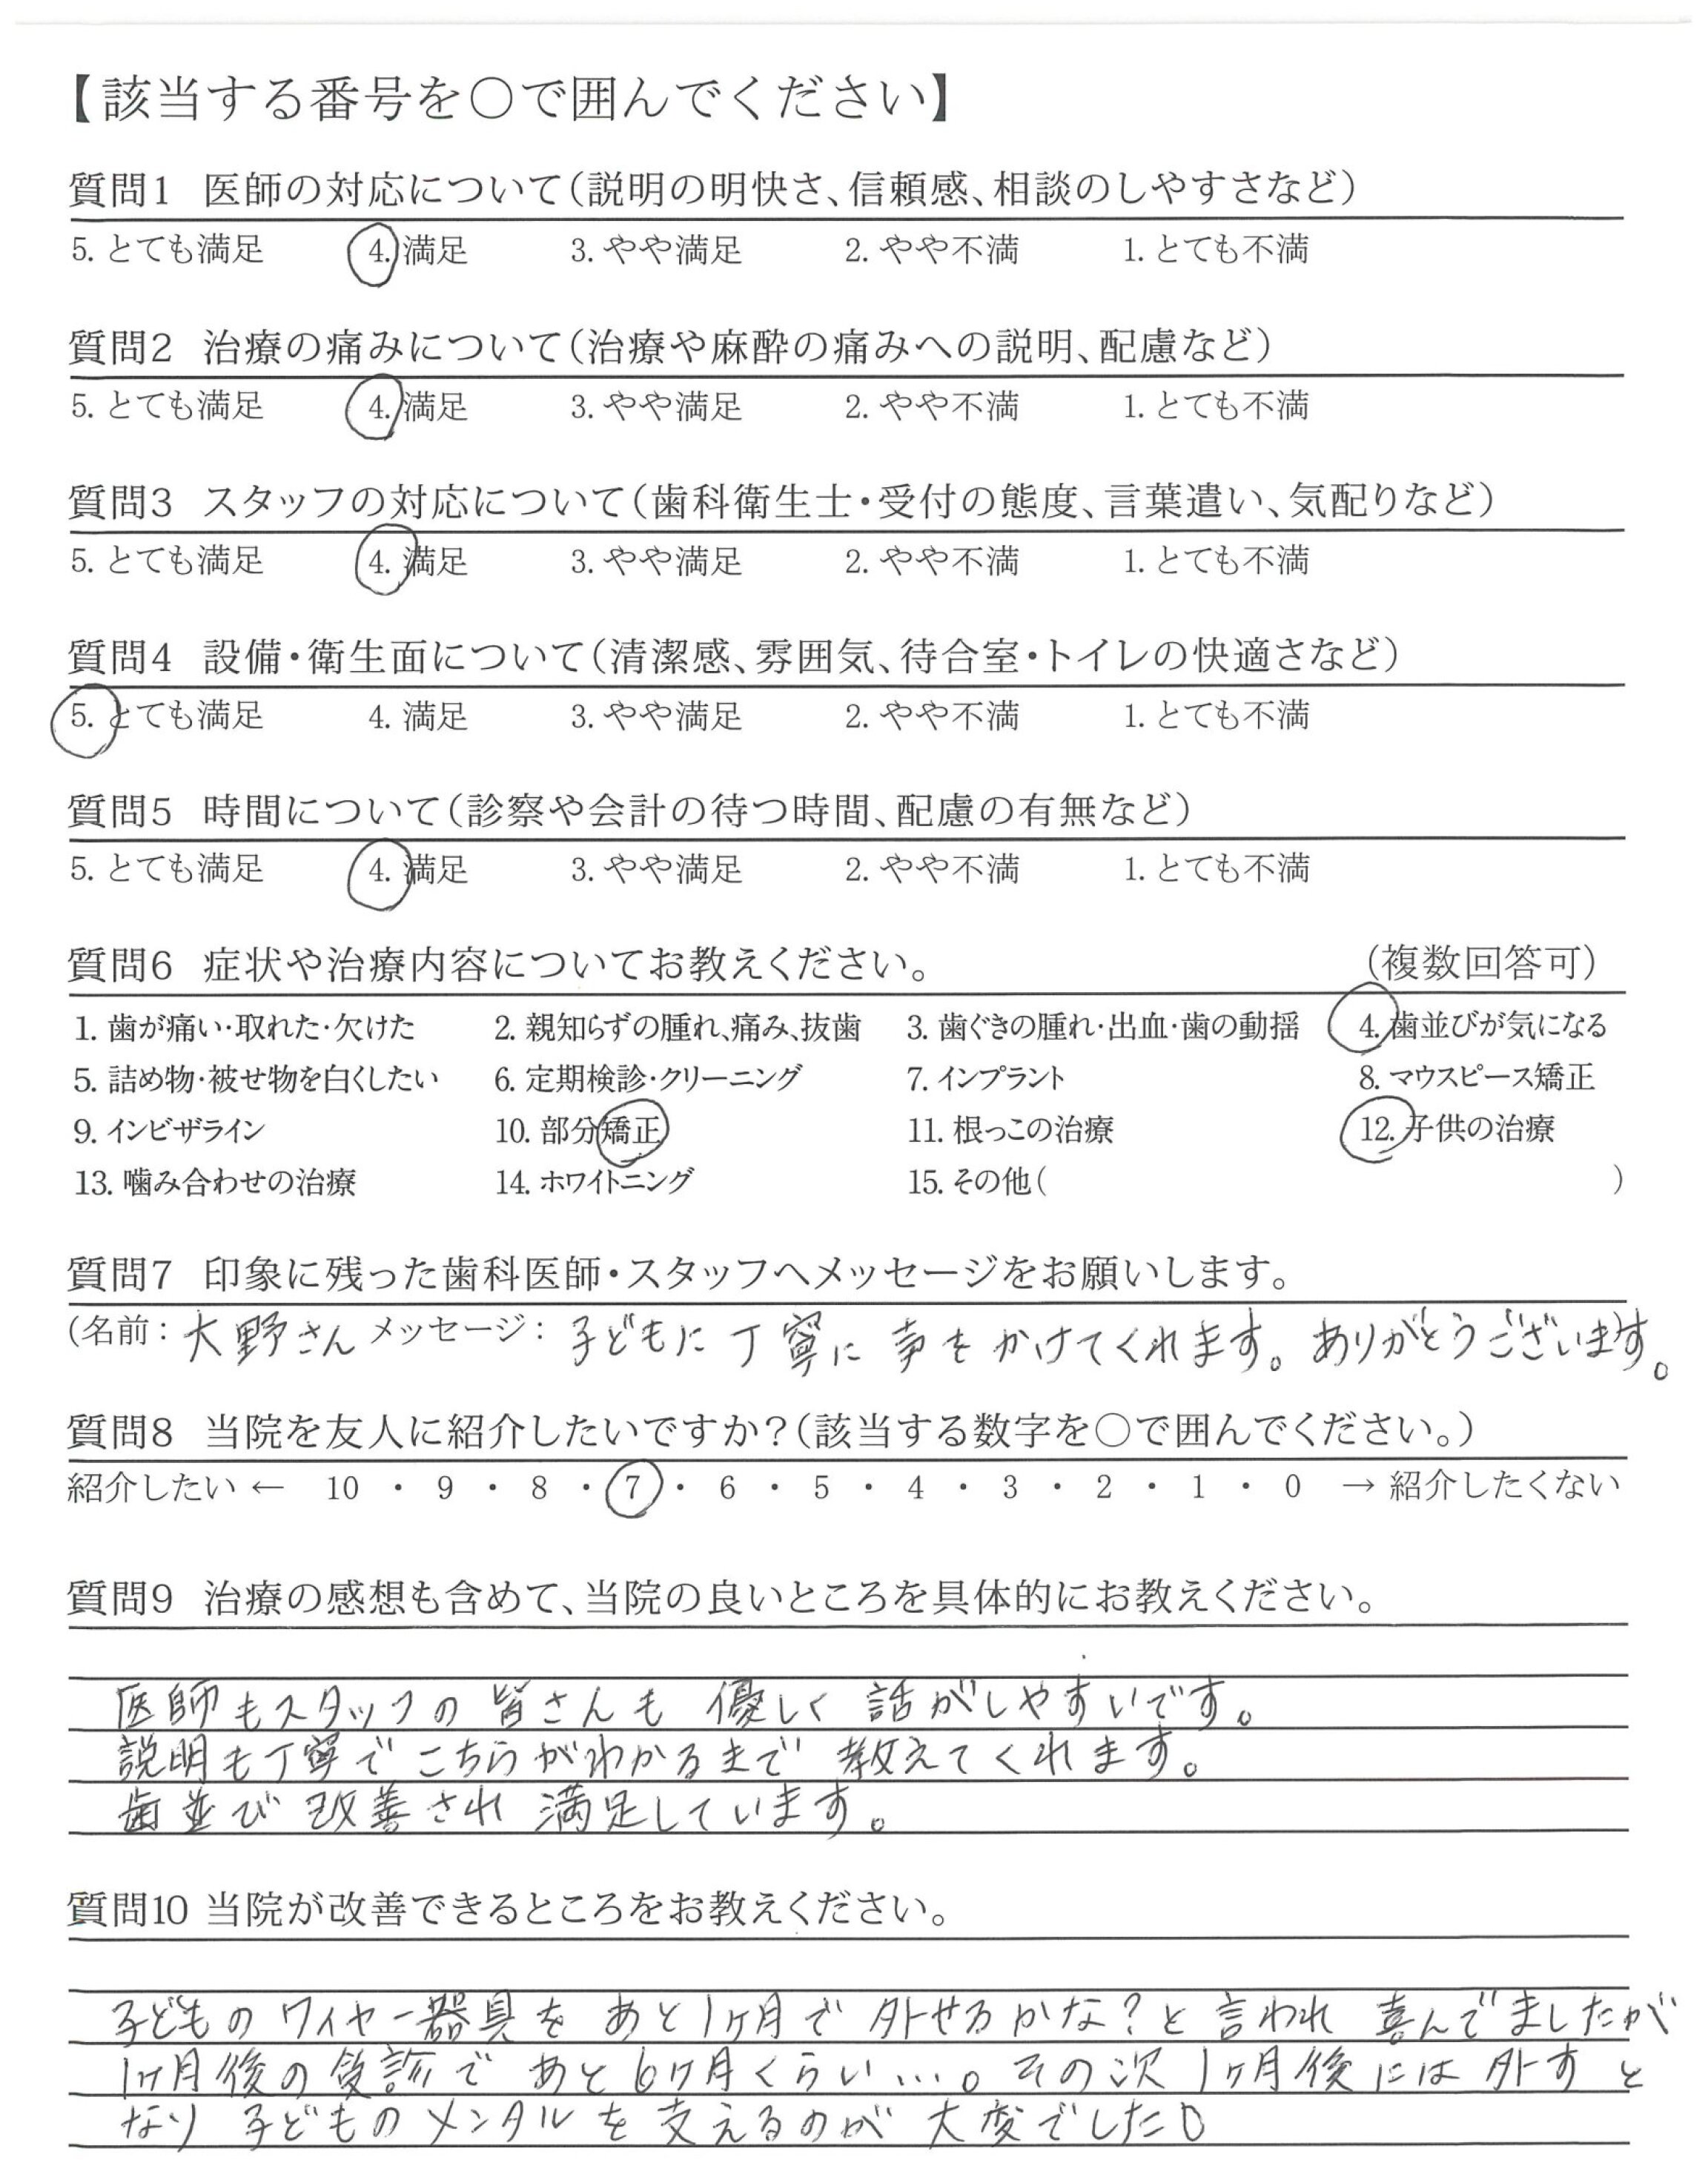 【該当する番号を○で囲んでください】
質問1 医師の対応について(説明の明快さ、信頼感、相談のしやすさなど)
5. とても満足 4. 満足 3. やや満足 2. やや不満 1. とても不満
質問2 治療の痛みについて(治療や麻酔の痛みへの説明、配慮など)
5. とても満足 4. 満足 3. やや満足 2. やや不満 1. とても不満
質問3 スタッフの対応について(歯科衛生士・受付の態度、言葉遣い、気配りなど)
5. とても満足 4. 満足 3. やや満足 2. やや不満 1. とても不満
質問4 設備・衛生面について(清潔感、雰囲気、待合室・トイレの快適さなど)
5. とても満足 4. 満足 3. やや満足 2. やや不満 1. とても不満
質問5 時間について(診察や会計の待つ時間、配慮の有無など)
5. とても満足 4. 満足 3. やや満足 2. やや不満 1. とても不満
質問6 症状や治療内容についてお教えください。 (複数回答可)
1. 歯が痛い・取れた・欠けた 2. 親知らずの腫れ、痛み、抜歯 3. 歯ぐきの腫れ・出血・歯の動揺 4. 歯並びが気になる
5. 詰め物・被せ物を白くしたい 6. 定期検診・クリーニング 7. インプラント 8. マウスピース矯正
9. インビザライン 10. 部分矯正 11. 根っこの治療 12. 子供の治療
13. 噛み合わせの治療 14. ホワイトニング 15. その他( )
質問7 印象に残った歯科医師・スタッフへメッセージをお願いします。
(名前: 大野さん メッセージ: 子どもに丁寧に声をかけてくれます。ありがとうございます。)
質問8 当院を友人に紹介したいですか?(該当する数字を○で囲んでください。)
紹介したい ← 10 ・ 9 ・ 8 ・ 7 ・ 6 ・ 5 ・ 4 ・ 3 ・ 2 ・ 1 ・ 0 → 紹介したくない
質問9 治療の感想も含めて、当院の良いところを具体的にお教えください。
医師もスタッフの皆さんも優しく話がしやすいです。
説明も丁寧でこちらがわかるまで教えてくれます。
歯並び改善され満足しています。
質問10 当院が改善できるところをお教えください。
子どものワイヤー器具をあと1ヶ月で外せるかな?と言われ喜んでましたが
1ヶ月後の受診であと6ヶ月くらい…。その次1ヶ月後には外すと
なり子どものメンタルを支えるのが大変でした。